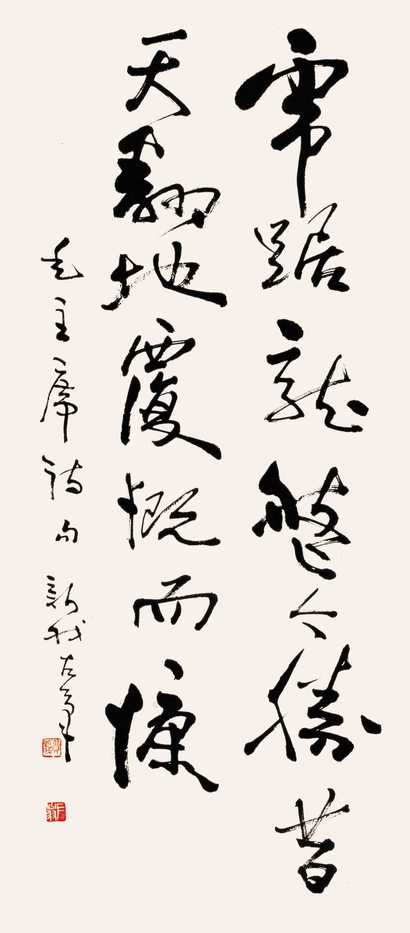 虎踞龙盘今胜昔
天翻地覆慨而慷
毛主席诗句 新我左笔